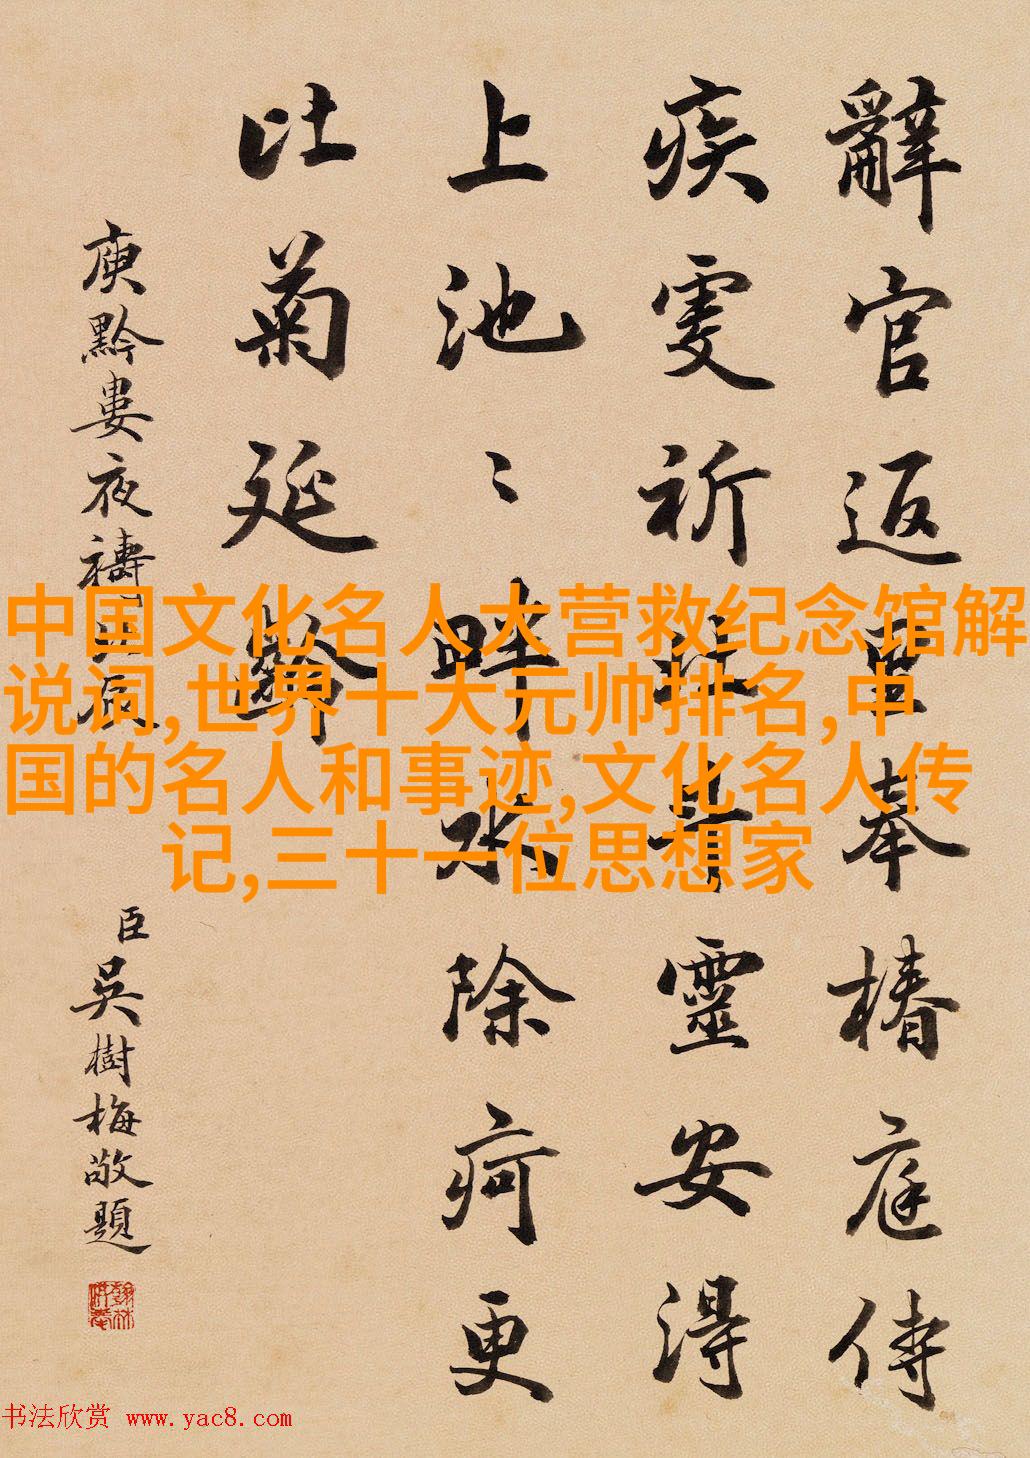 辭官返里奉椿庭侍
疾虔祈斗靈安得
上池〻畔水除疴更
比菊延齡
庾黔婁夜禱北辰
臣吳樹梅敬題
翰林供奉
中国文化名人大营救纪念馆解
说词,世界十大元帅排名,中
国的名人和事迹,文化名人传
记,三十一位思想家
书法欣赏 www.yac8.com